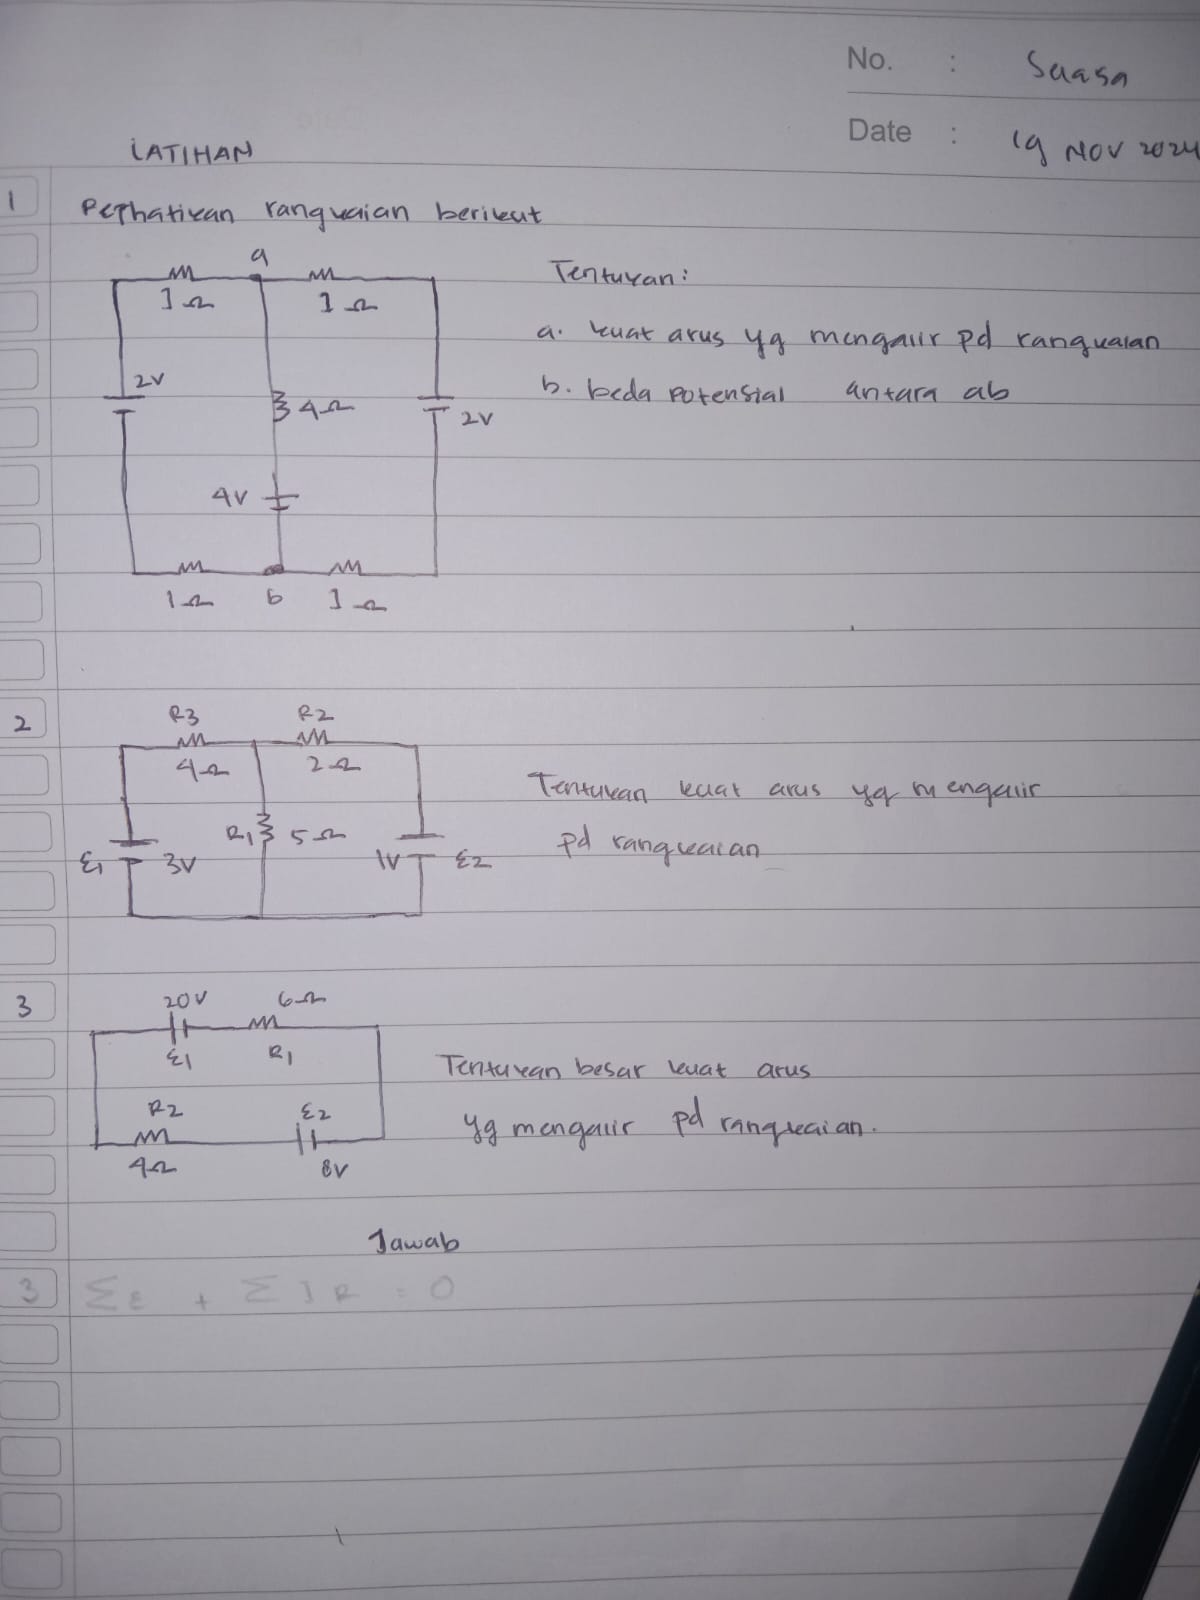 No. : Suasa
Date : 19 NOV 2024
LATIHAN
1 Perhatikan rangkaian berikut
a
1Ω 1Ω
2V
4Ω
2V
4V
1Ω b 1Ω
Tentukan:
a. kuat arus yg mengalir pd rangkaian
b. beda potensial antara ab
2
R3 R2
4Ω 2Ω
R1 5Ω
ε1 3V 1V ε2
Tentukan kuat arus yg mengalir
pd rangkaian
3
20V 6Ω
ε1 R1
R2 ε2
4Ω 8V
Tentukan besar kuat arus
yg mengalir pd rangkaian.
Jawab
3 Σε + ΣIR = 0